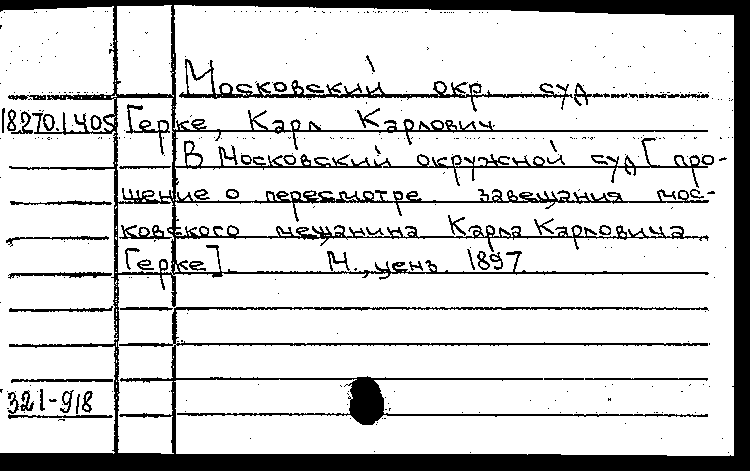 Московский окр. суд
18270.1.405 Герке, Карл Карлович
В Московский окружной суд [про-
шение о пересмотре завещания мос-
ковского мещанина Карла Карловича
Герке]. М., ценз. 1897.
321-918